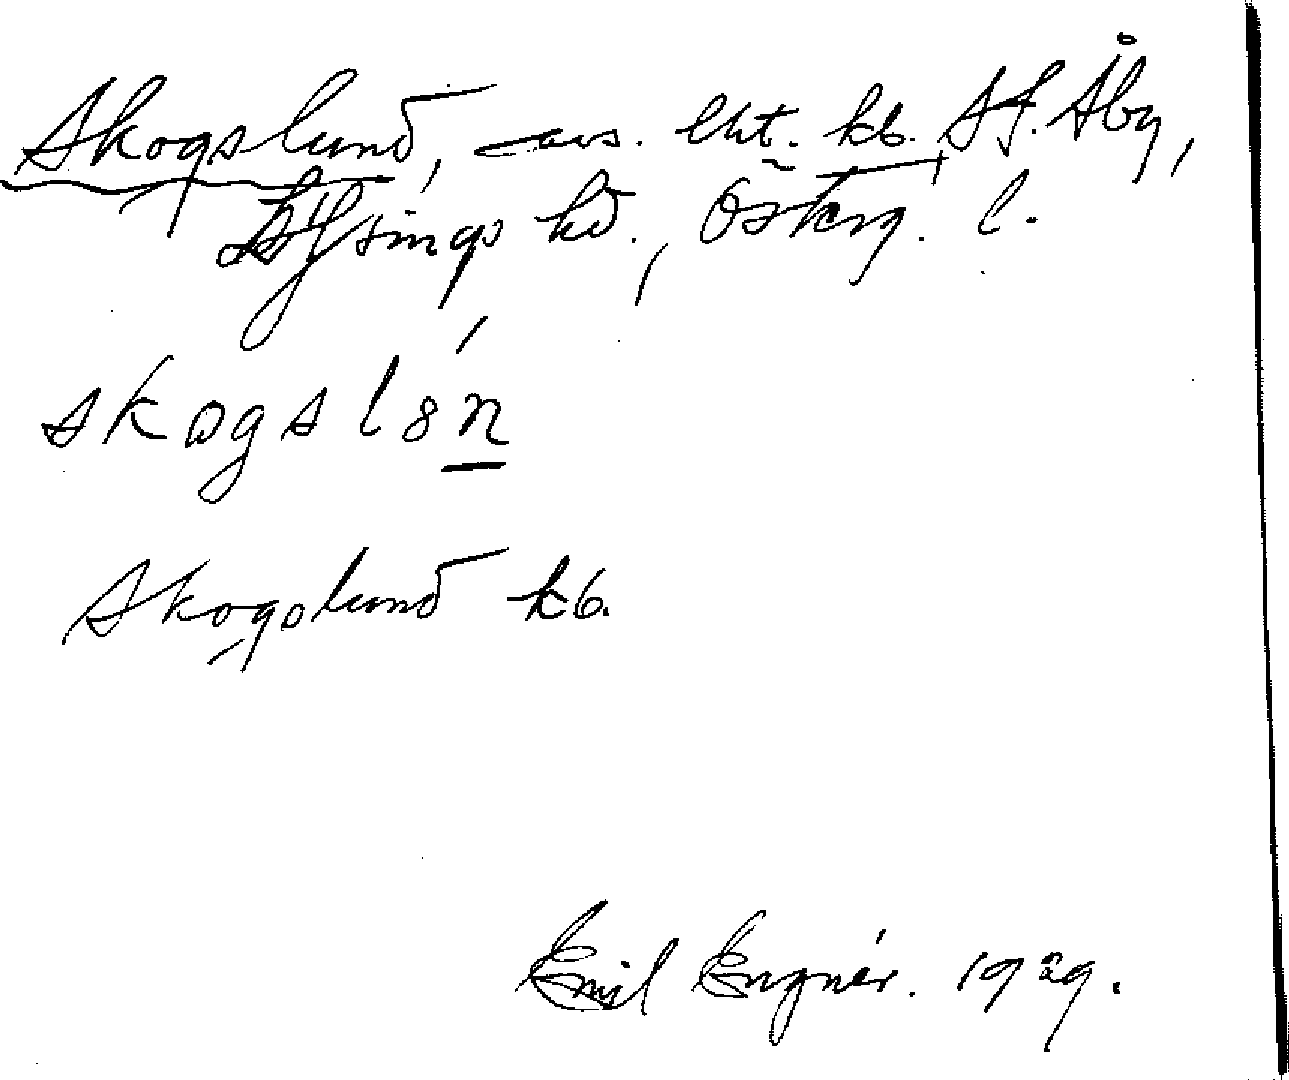 Skogslund, avs. enl. kb. St. Åby,
Lysings hd., Österg. l.
skogsl8́n
Skogslund kb.
Emil Engnér. 1929.